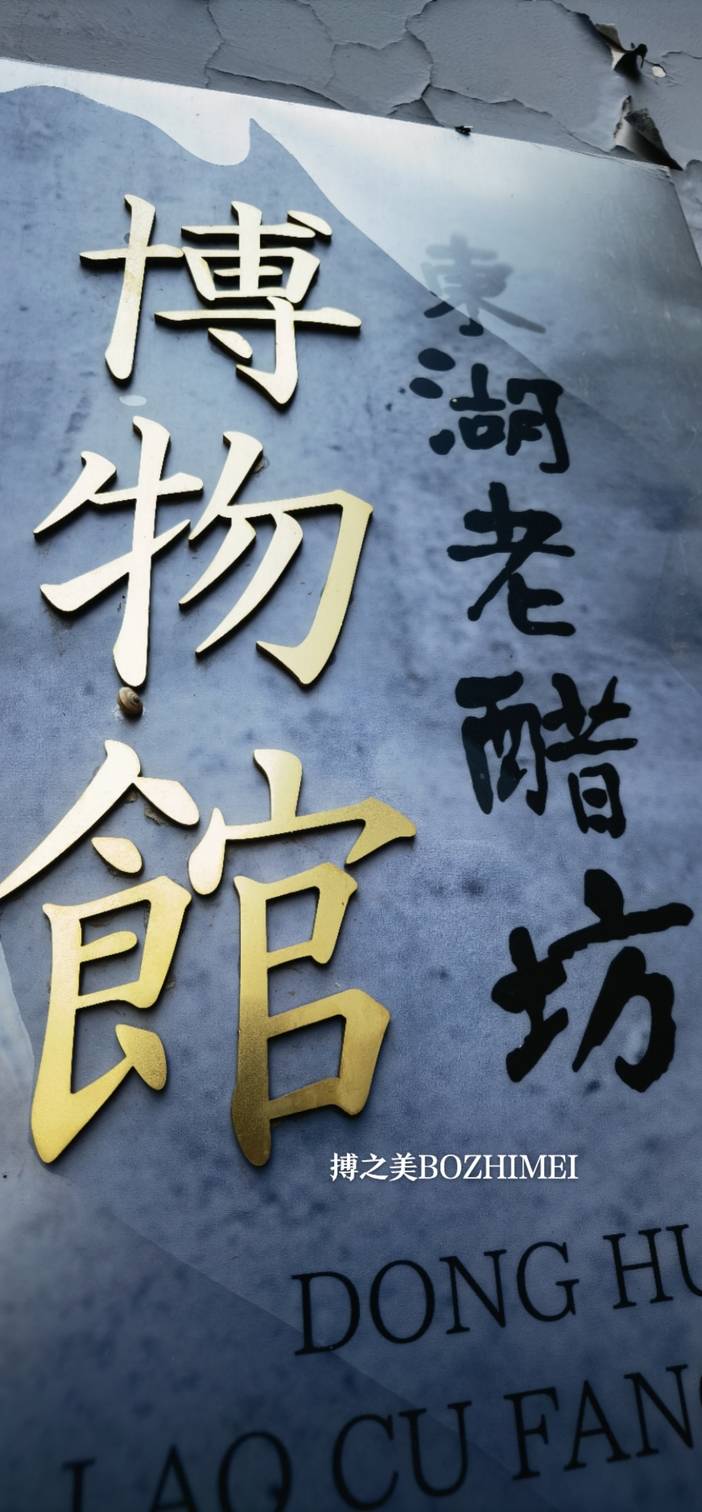 東湖老醋坊
博物館
搏之美BOZHIMEI
DONG HU
LAO CU FANG